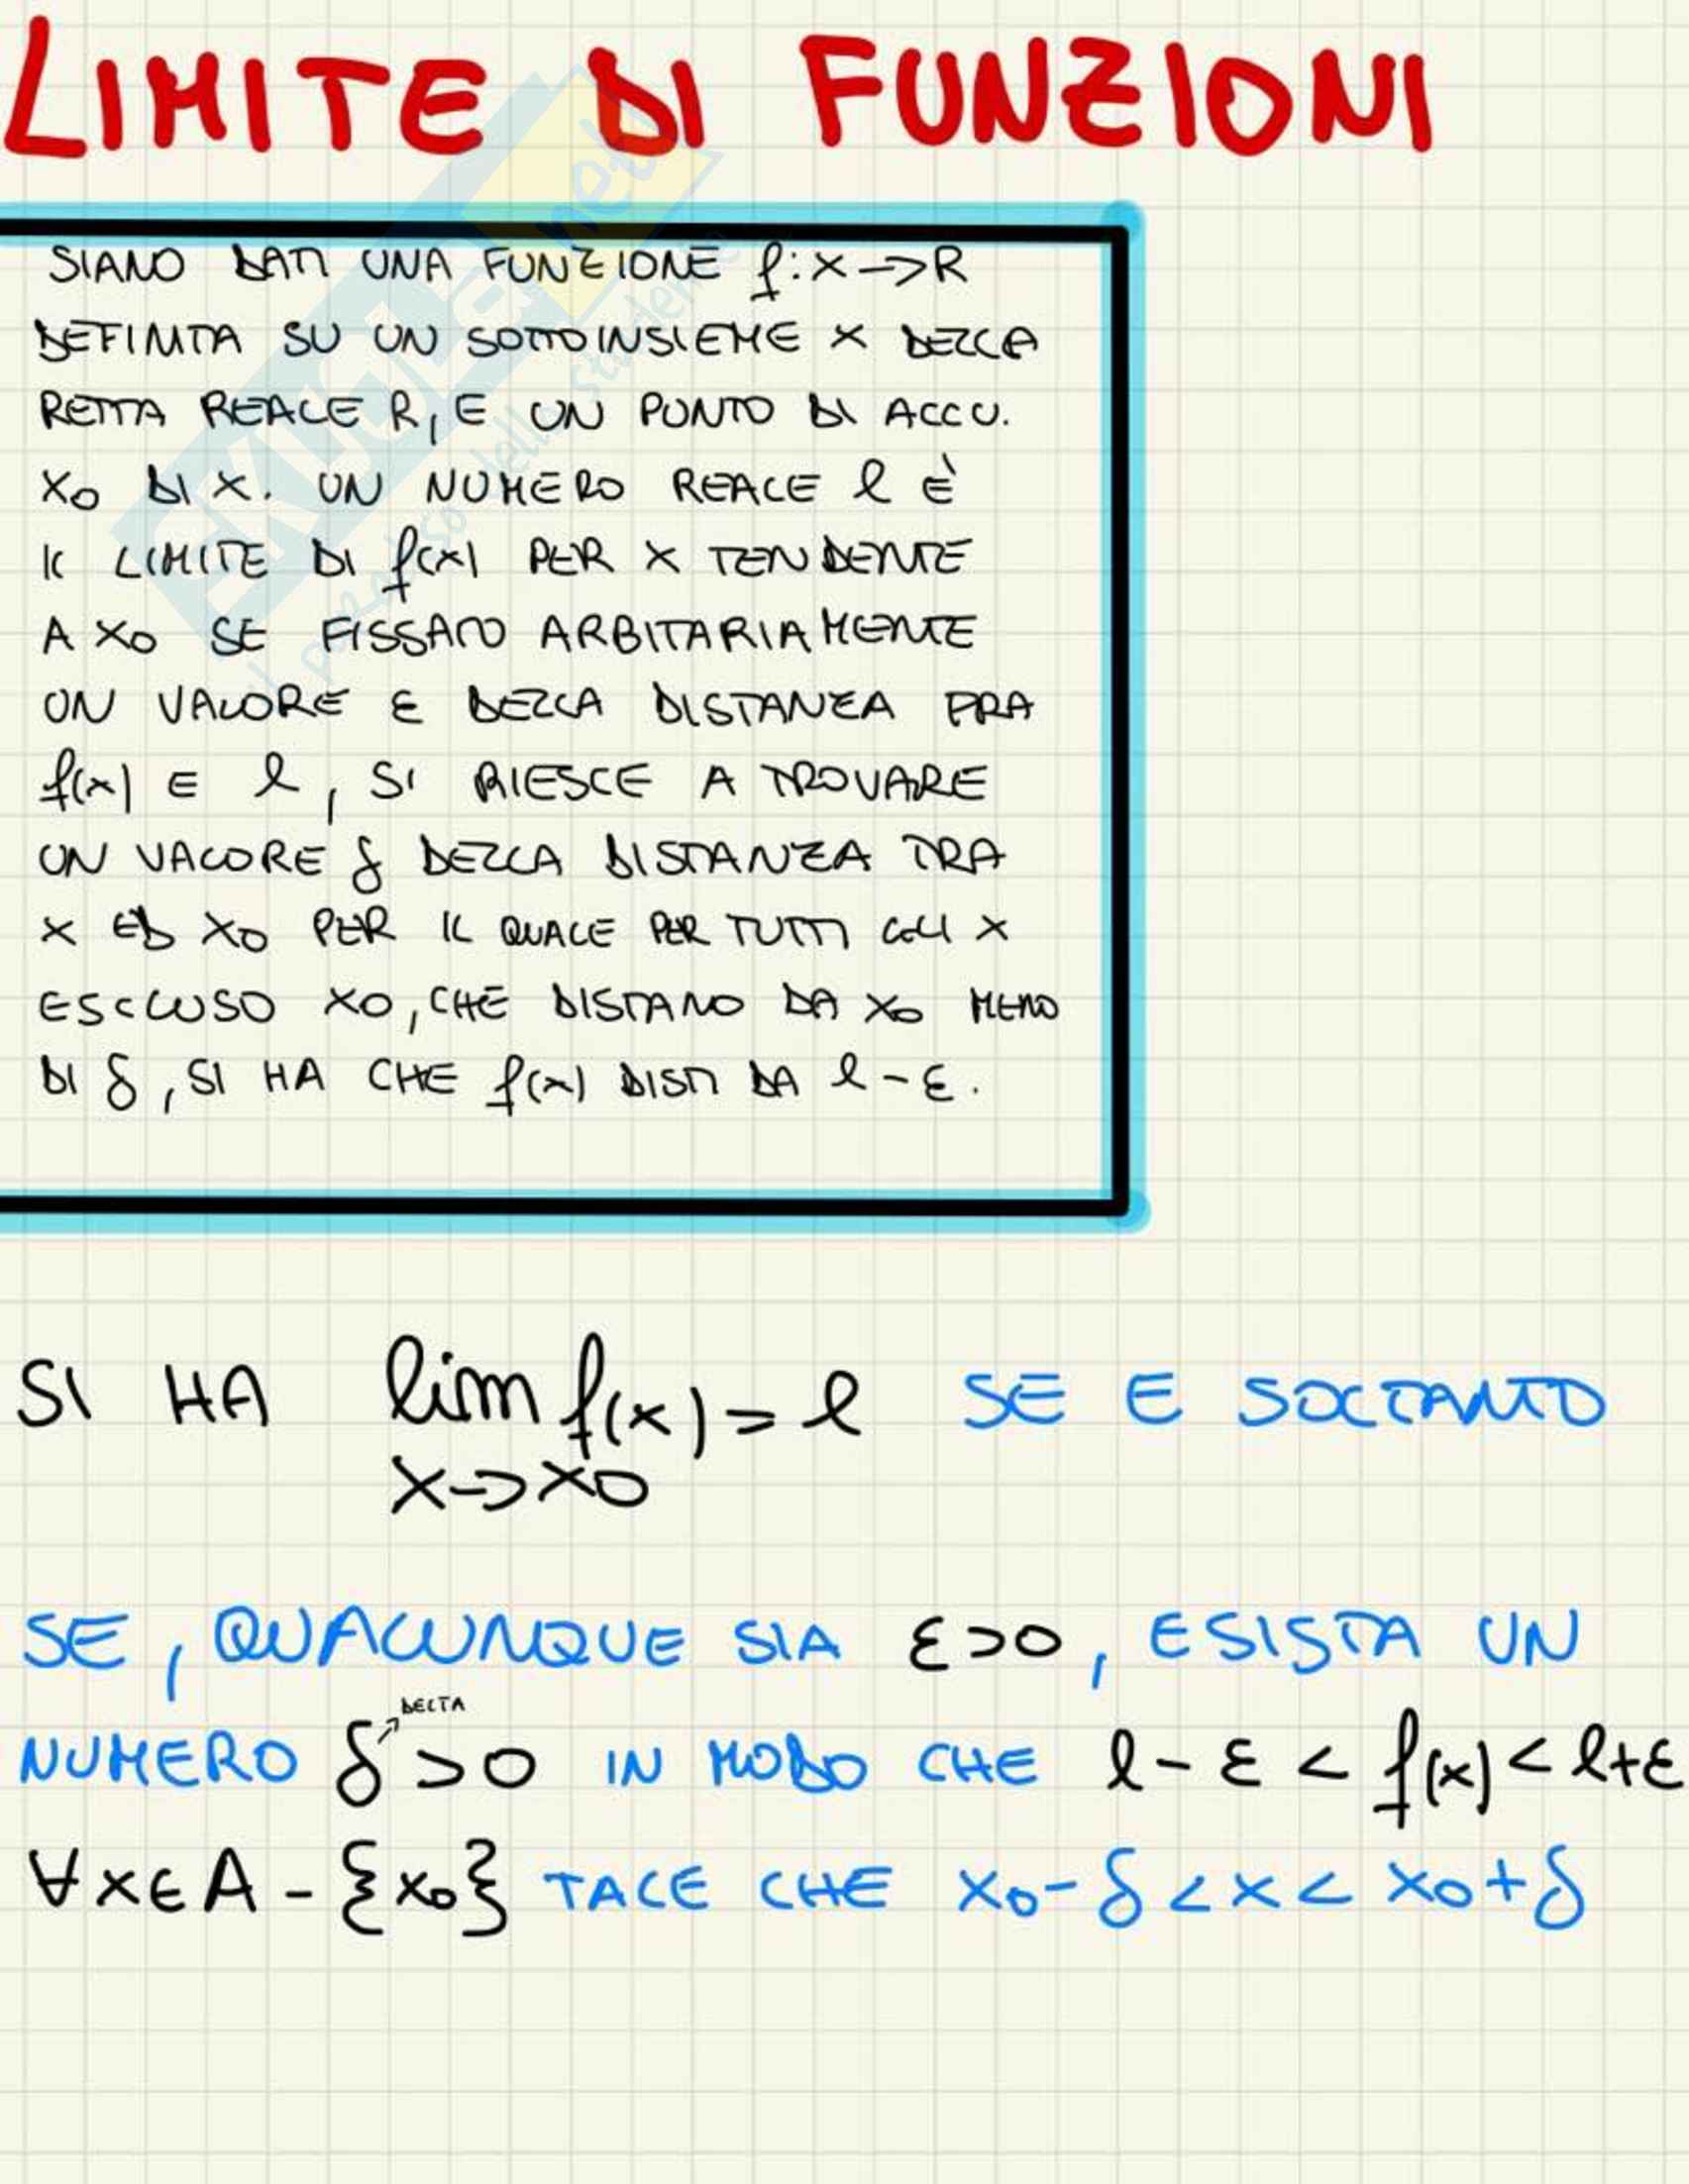 LIMITE DI FUNZIONI
SIANO DATI UNA FUNZIONE f:X->R
DEFINITA SU UN SOTTOINSIEME X DELLA
RETTA REALE R, E UN PUNTO DI ACCU.
X0 DI X. UN NUMERO REALE l È
IL LIMITE DI f(x) PER X TENDENTE
A X0 SE FISSATO ARBITARIAMENTE
UN VALORE ε DELLA DISTANZA FRA
f(x) E l, SI RIESCE A TROVARE
UN VALORE δ DELLA DISTANZA TRA
X ED X0 PER IL QUALE PER TUTTI GLI X
ESCLUSO X0, CHE DISTANO DA X0 MENO
DI δ, SI HA CHE f(x) DISTI DA l-ε.
SI HA lim f(x) = l SE E SOLTANTO
X->X0
SE, QUALUNQUE SIA ε>0, ESISTA UN
DELTA
NUMERO δ>0 IN MODO CHE l-ε < f(x) < l+ε
∀x∈A-{x0} TALE CHE X0-δ<X<X0+δ
SKUOLA.net
il paradiso dello studente